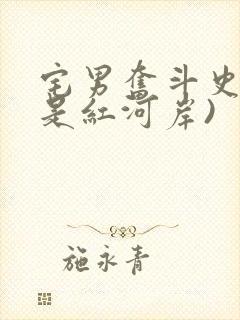 宅男奋斗史
是红河岸)
施永青